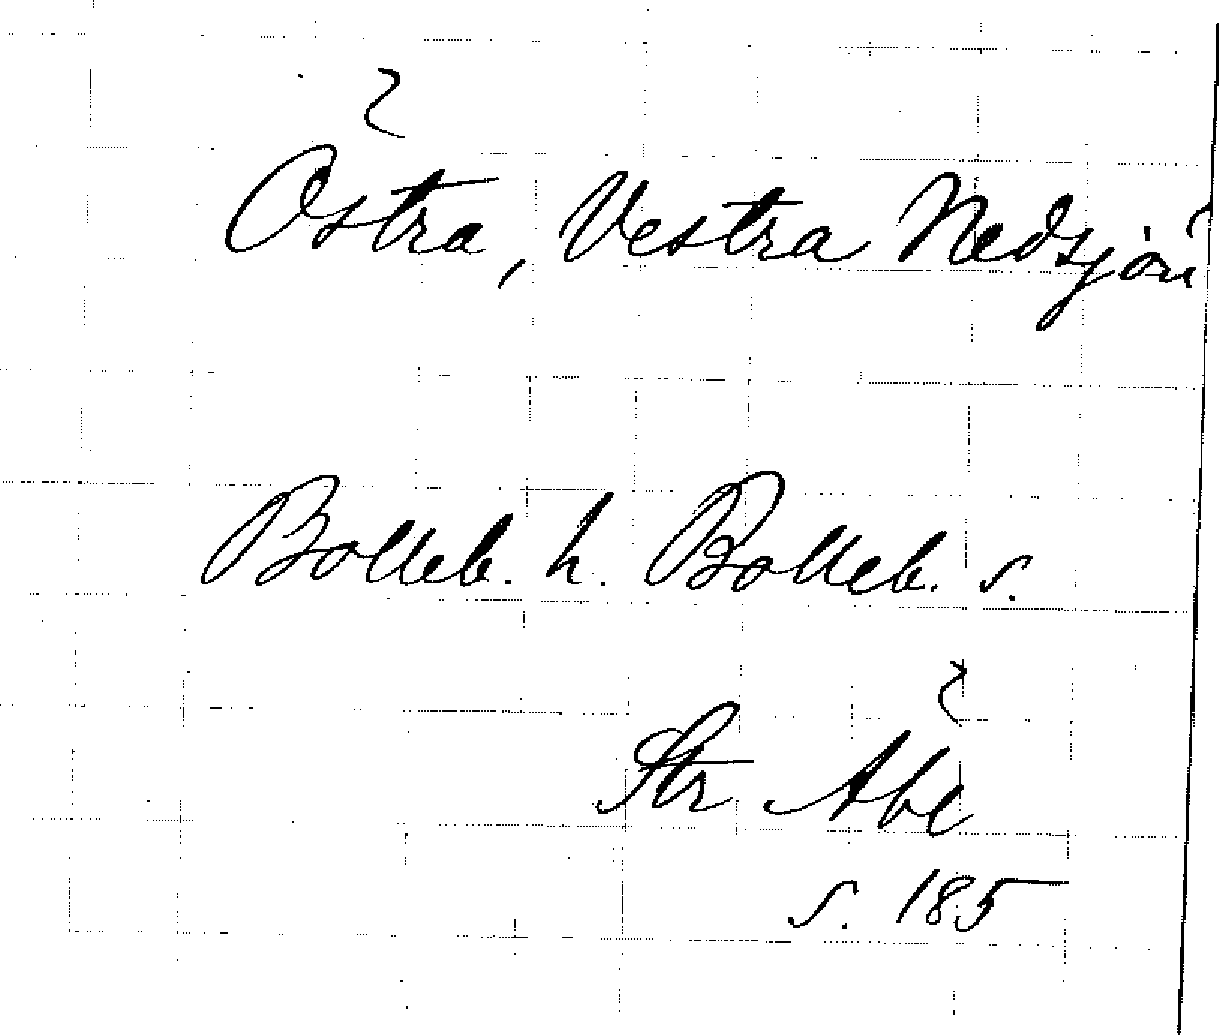 Östra, Vestra Nedsjön
Bolleb. h. Bolleb. s.
Str Abe
s. 185